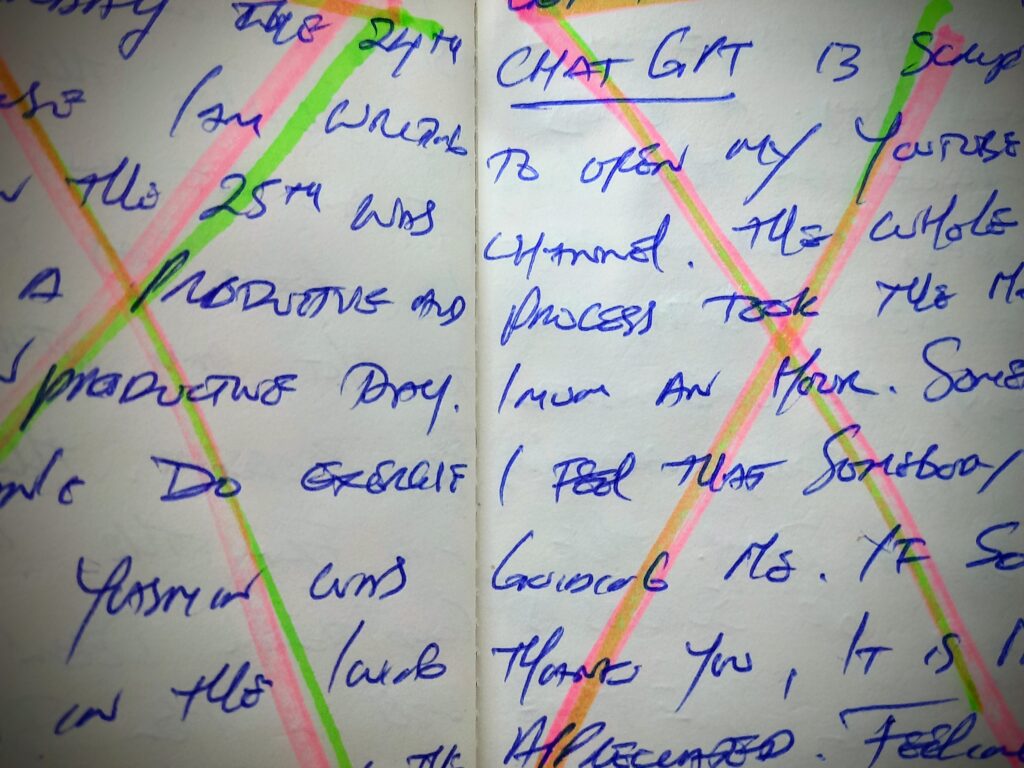 THE 24TH
I AM WRITING
THE 25TH WAS
A PRODUCTIVE AND
PRODUCTIVE DAY.
DO EXERCISE
YASMIN WAS
IN THE LIVING
THE
CHAT GPT IS Scrip
TO OPEN MY YOUTUBE
CHANNEL. THE WHOLE
PROCESS TOOK THE MA
IMUM AN HOUR. SOME
I FEEL THAT SOMEBODY
GUIDING ME. IF SO
THANKS YOU, IT IS
APPRECIATED. FEELING